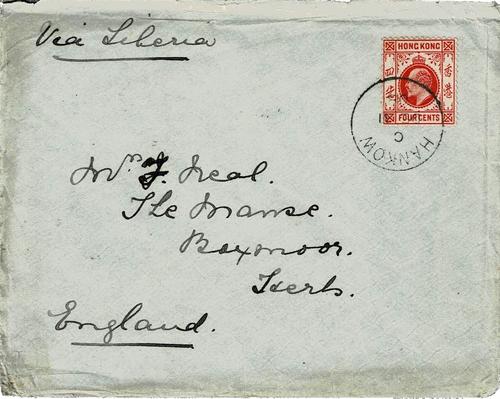 Via Siberia
HONG KONG
FOUR CENTS
HANKOW
C
Mrs J. Neal.
The Manse.
Boxmoor.
Herts.
England.